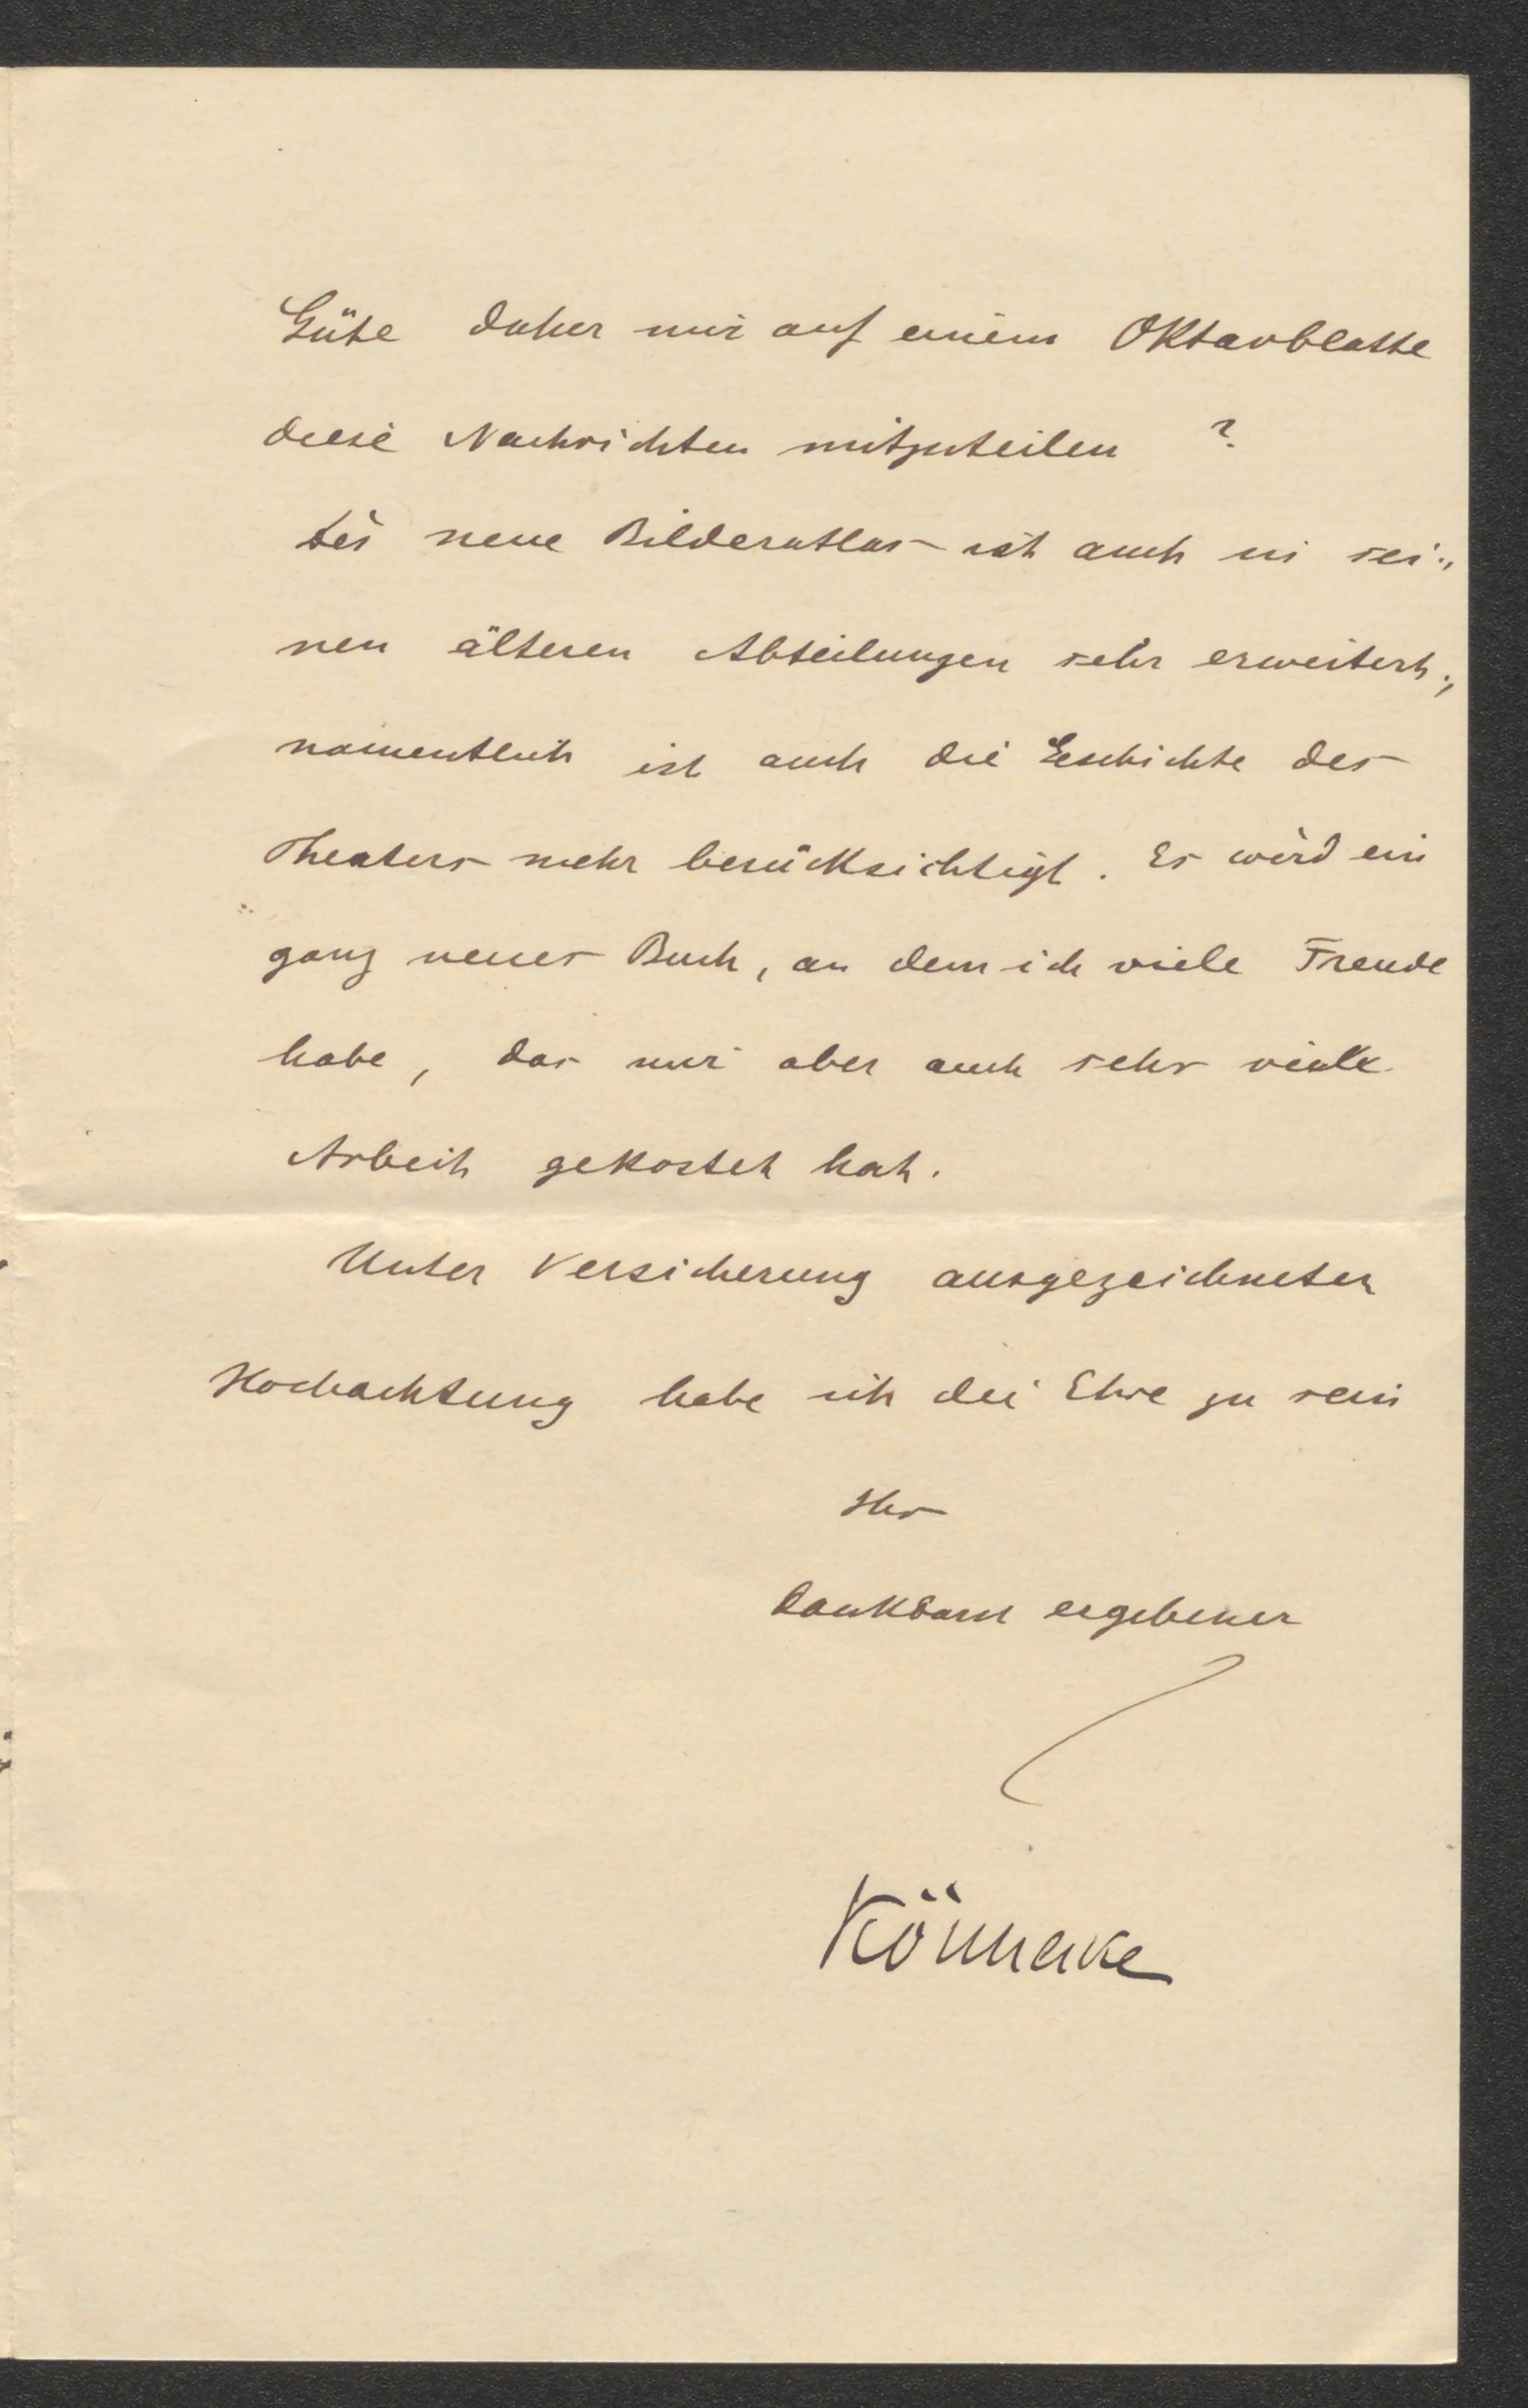 Güte daher mir auf einem Oktavblatte
diese Nachrichten mitzuteilen ?
Der neue Bilderatlas ist auch in sei-
nen älteren Abteilungen sehr erweitert;
namentlich ist auch die Geschichte des
Theaters mehr berücksichtigt. Es wird ein
ganz neues Buch, an dem ich viele Freude
habe, das mir aber auch sehr viele
Arbeit gekostet hat.
Unter Versicherung ausgezeichneter
Hochachtung habe ich die Ehre zu sein
Ihr
dankbar ergebener
Könnecke